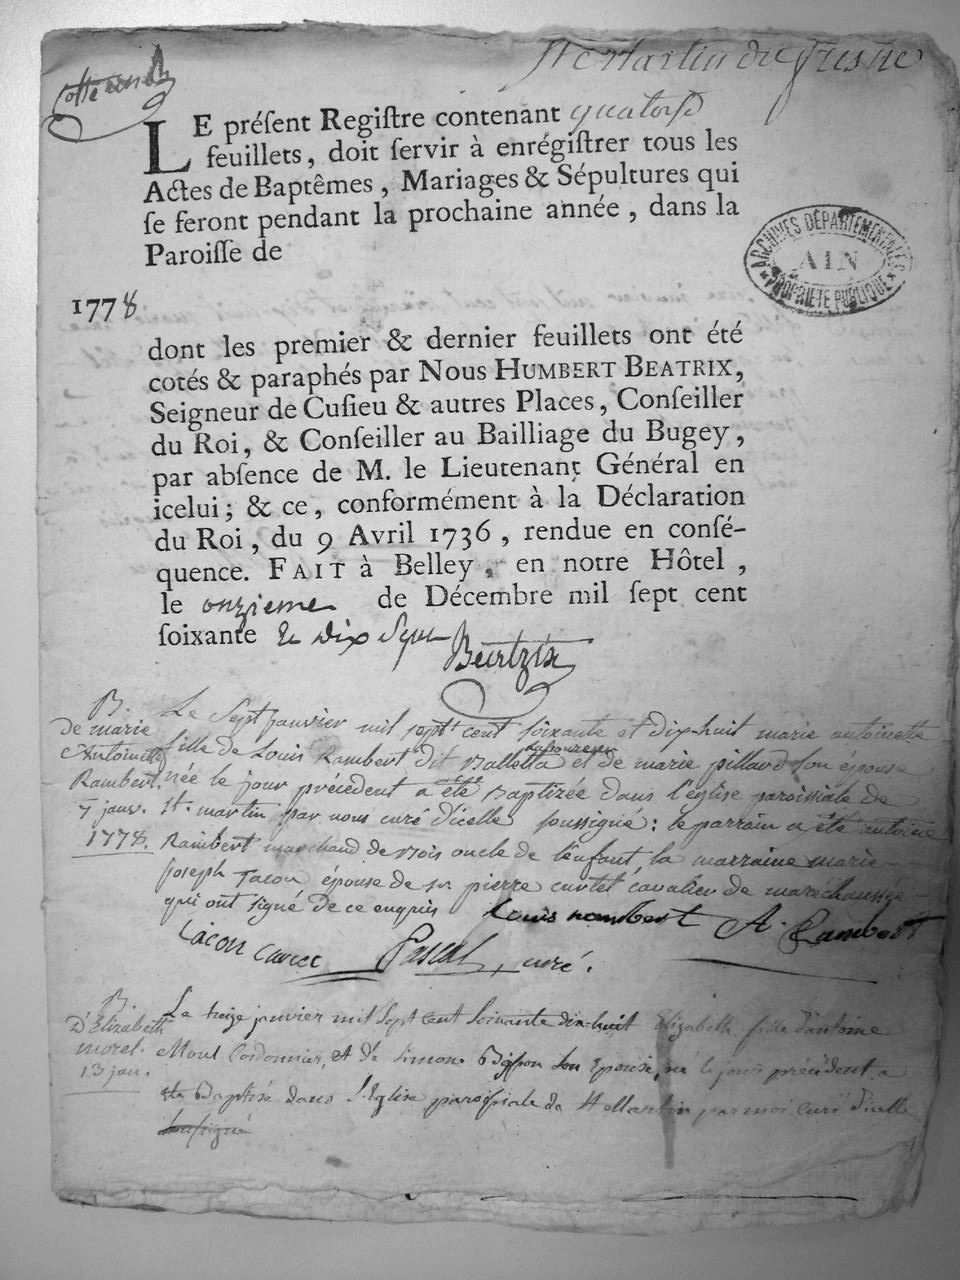 St Martin du fresne
Cotte
LE préſent Regiſtre contenant quatorſe
feuillets, doit ſervir à enrégiſtrer tous les
Actes de Baptêmes, Mariages & Sépultures qui
ſe feront pendant la prochaine année, dans la
Paroiſſe de
ARCHIVES DÉPARTEMENTALES
AIN
PROPRIÉTÉ PUBLIQUE
1778
dont les premier & dernier feuillets ont été
cotés & paraphés par Nous HUMBERT BEATRIX,
Seigneur de Cuſieu & autres Places, Conſeiller
du Roi, & Conſeiller au Bailliage du Bugey,
par abſence de M. le Lieutenant Général en
icelui; & ce, conformément à la Déclaration
du Roi, du 9 Avril 1736, rendue en conſé-
quence. FAIT à Belley, en notre Hôtel,
le onzieme de Décembre mil ſept cent
ſoixante & dix Sept
B.
de marie
Antoinette
Rambert.
7 janv.
1778.
Le Sept janvier mil sept cent soixante et dix-huit marie antoinette
fille de Louis Rambert dit et de marie pillard son épouse
née le jour précédent a été Baptizée dans l'église paroissiale de
St. martin par nous curé d'icelle soussigné: le parrain a été antoine
Rambert marchand de bois oncle de l'enfant la marraine marie
joseph Tacon épouse de sr pierre curtet cavalier de maréchaussée
qui ont signé de ce enquis Louis rambert A. Rambert
Pascal, curé.
B.
D'Elizabeth
morel.
13 jan.
Le treize janvier mil Sept cent Soixante dix-huit Elizabeth fille d'antoine
Morel Cordonnier, et de Simone son Epouse, né le jour précédent a
été Baptisé dans l'Eglise paroissiale de St Martin par moi curé d'icelle
soussigné